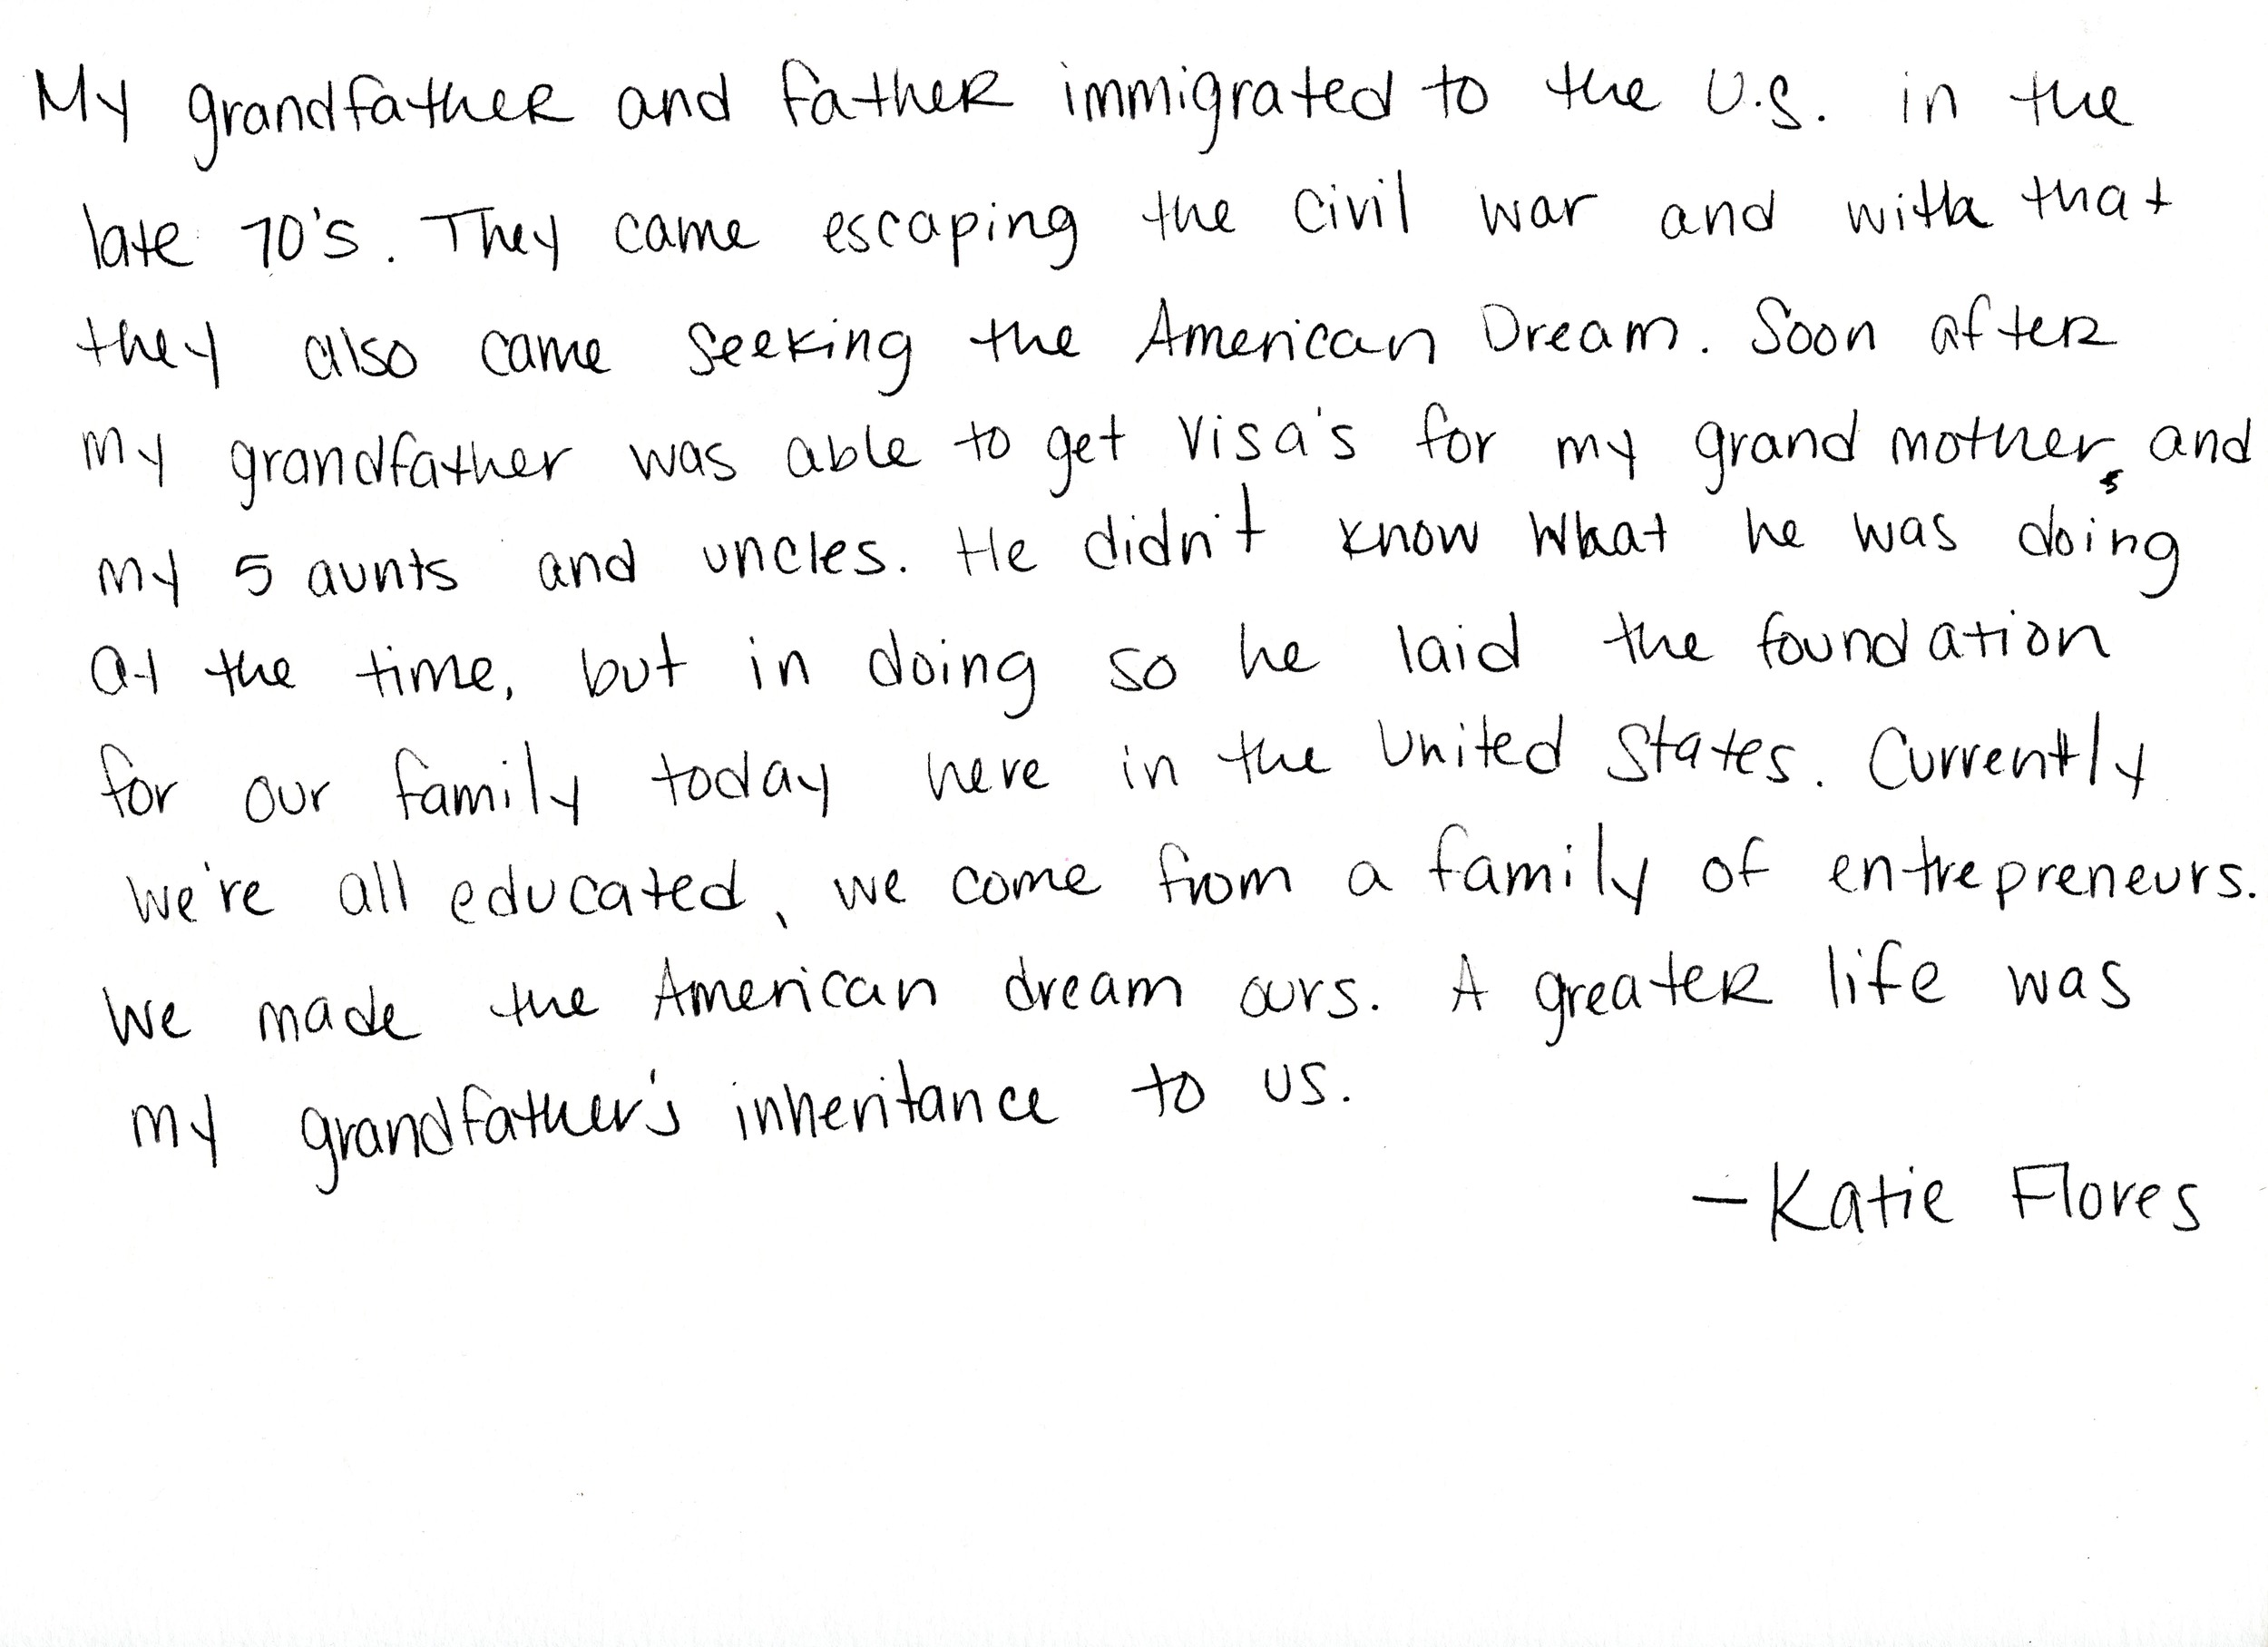 My grandfather and father immigrated to the U.S. in the
late 70's. They came escaping the civil war and with that
they also came seeking the American Dream. Soon after
my grandfather was able to get visa's for my grand mother, and
my 5 aunts and uncles. He didn't know what he was doing
at the time, but in doing so he laid the foundation
for our family today here in the United States. Currently
we're all educated, we come from a family of entrepreneurs.
We made the American dream ours. A greater life was
my grandfather's inheritance to us.
-Katie Flores